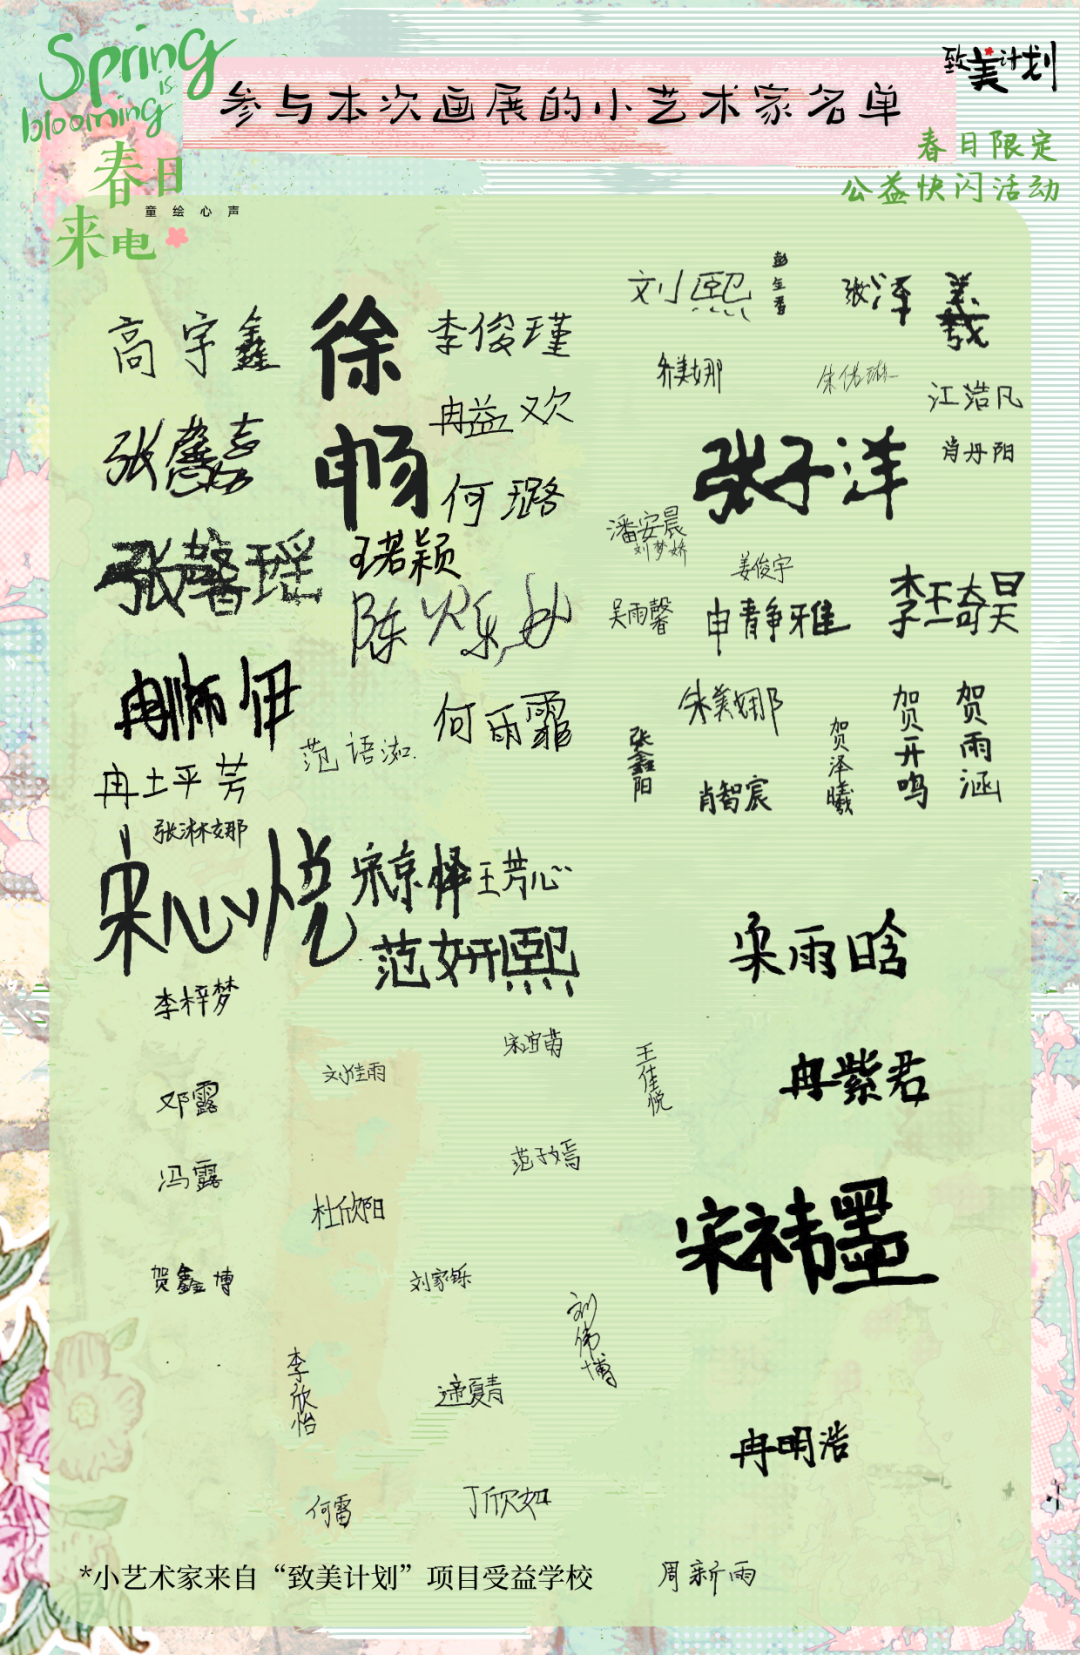 Spring
is
blooming
春日
来电
童绘心声
致美计划
参与本次画展的小艺术家名单
春日限定
公益快闪活动
高宇鑫
徐畅
李俊瑾
刘熙
张泽羲
冉益欢
朱美娜
江浩凡
张子洋
肖丹阳
何璐
潘安晨
刘梦娇
张馨瑶
王珺颖
姜俊宇
吴雨馨
申静雅
李玉琦昊
冉炳伊
何雨霏
朱美娜
张鑫阳
贺泽曦
贺开鸣
贺雨涵
范语淑
肖智宸
冉土平芳
张淋娜
宋心悦
宋京怿
王芳心
范妍熙
宋雨晗
李梓梦
宋谊萌
王佳悦
刘佳雨
冉紫君
邓露
范子嫣
冯露
杜欣阳
宋祎墨
贺鑫博
刘家铄
刘伟博
李欣怡
冉明浩
何雷
丁欣如
周新雨
*小艺术家来自“致美计划”项目受益学校